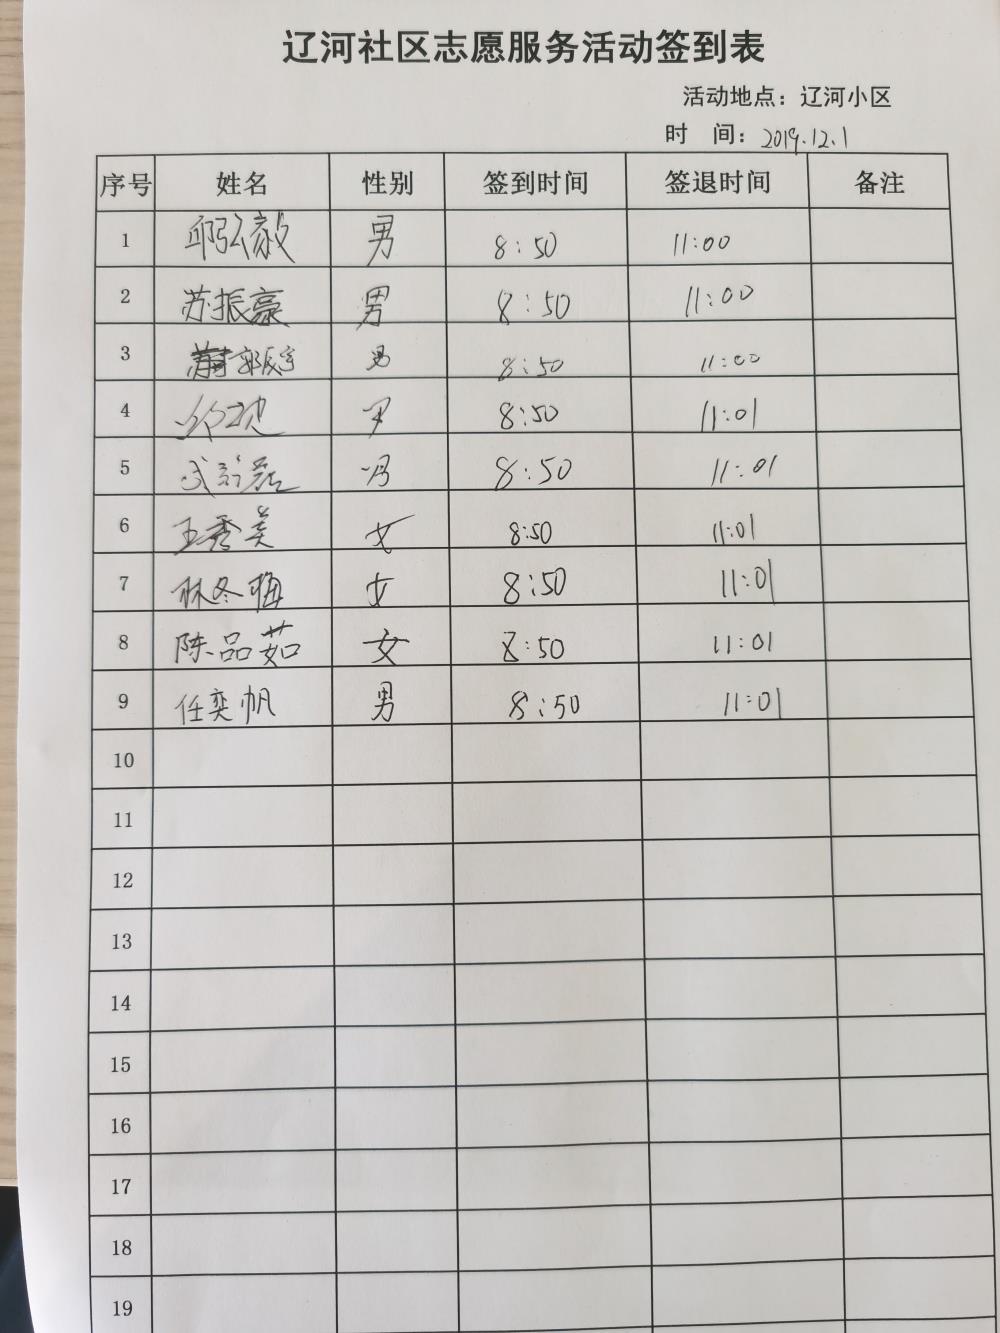 辽河社区志愿服务活动签到表
活动地点：辽河小区
时 间：2019.12.1
序号 姓名 性别 签到时间 签退时间 备注
1 邱弘毅 男 8:50 11:00
2 苏振豪 男 8:50 11:00
3 郭辰宇 男 8:50 11:00
4 男 8:50 11:01
5 男 8:50 11:01
6 王秀美 女 8:50 11:01
7 林冬梅 女 8:50 11:01
8 陈品茹 女 8:50 11:01
9 任奕帆 男 8:50 11:01
10
11
12
13
14
15
16
17
18
19